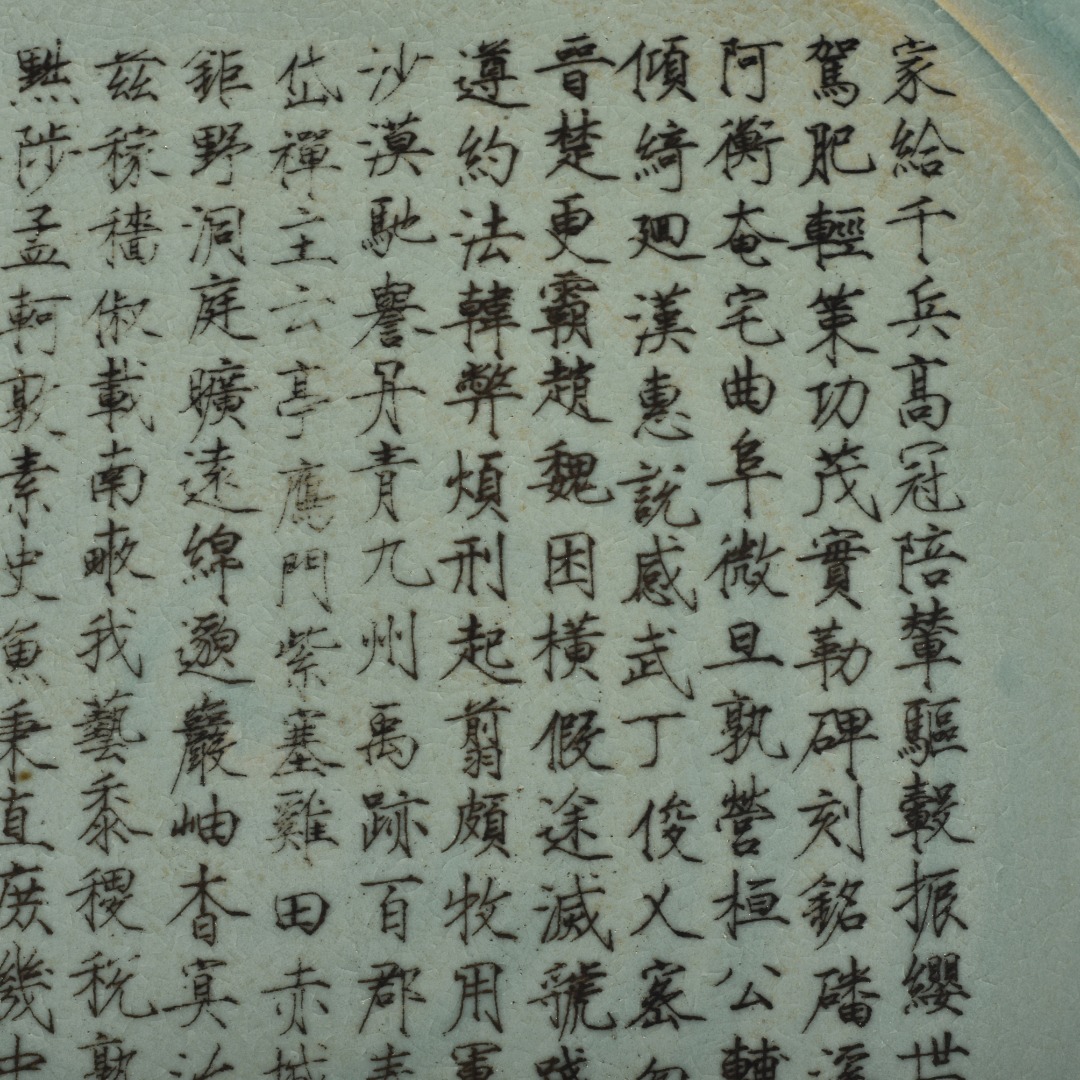 家給千兵高冠陪輦驅轂振纓世
駕肥輕策功茂實勒碑刻銘磻溪
阿衡奄宅曲阜微旦孰營桓公輔
傾綺廻漢惠說感武丁俊乂密勿
晉楚更霸趙魏困橫假途滅虢踐
遵約法韓弊煩刑起翦頗牧用軍
沙漠馳譽丹青九州禹跡百郡秦
岱禪主云亭鴈門紫塞雞田赤城
鉅野洞庭曠遠綿邈巖岫杳冥治
茲稼穡俶載南畝我藝黍稷稅熟
黜陟孟軻敦素史魚秉直庶幾中